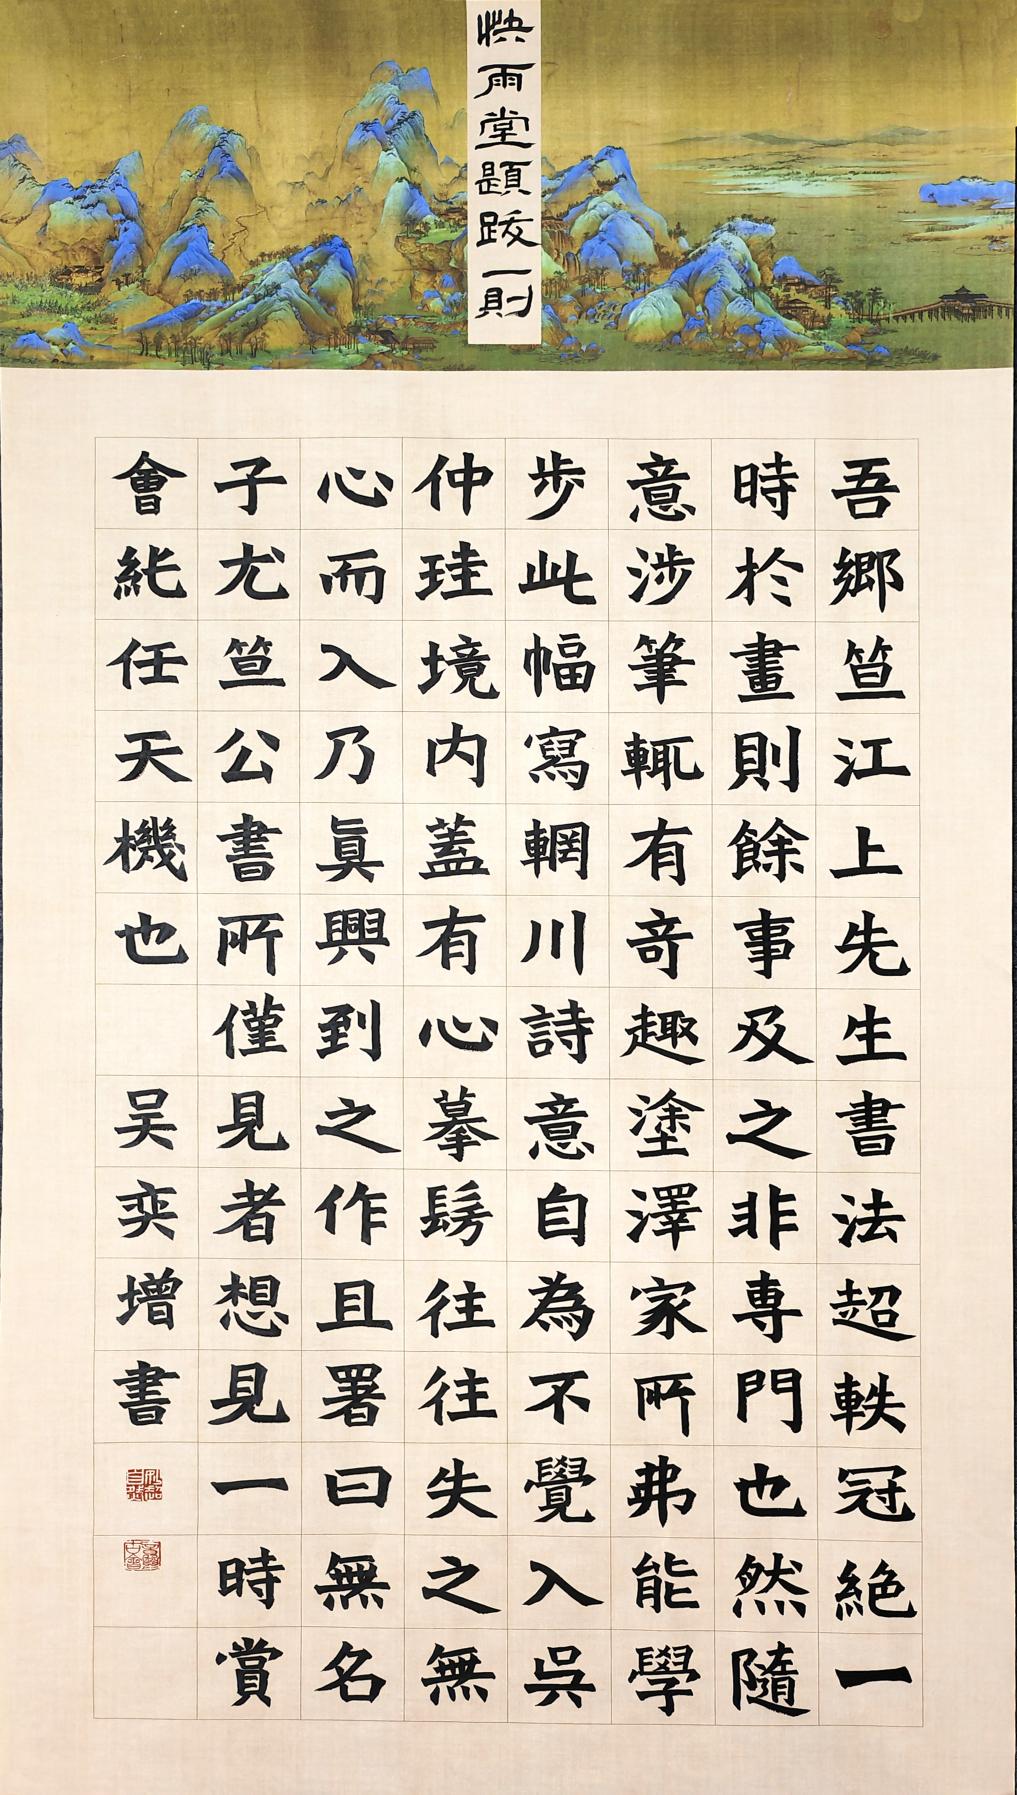 快雨堂題跋一則
吾鄉笪江上先生書法超軼冠絶一
時於畫則餘事及之非専門也然隨
意涉筆輒有竒趣塗澤家所弗能學
步此幅寫輞川詩意自為不覺入吳
仲珪境内蓋有心摹髣往往失之無
心而入乃真興到之作且署曰無名
子尤笪公書所僅見者想見一時賞
會純任天機也 吴奕增書